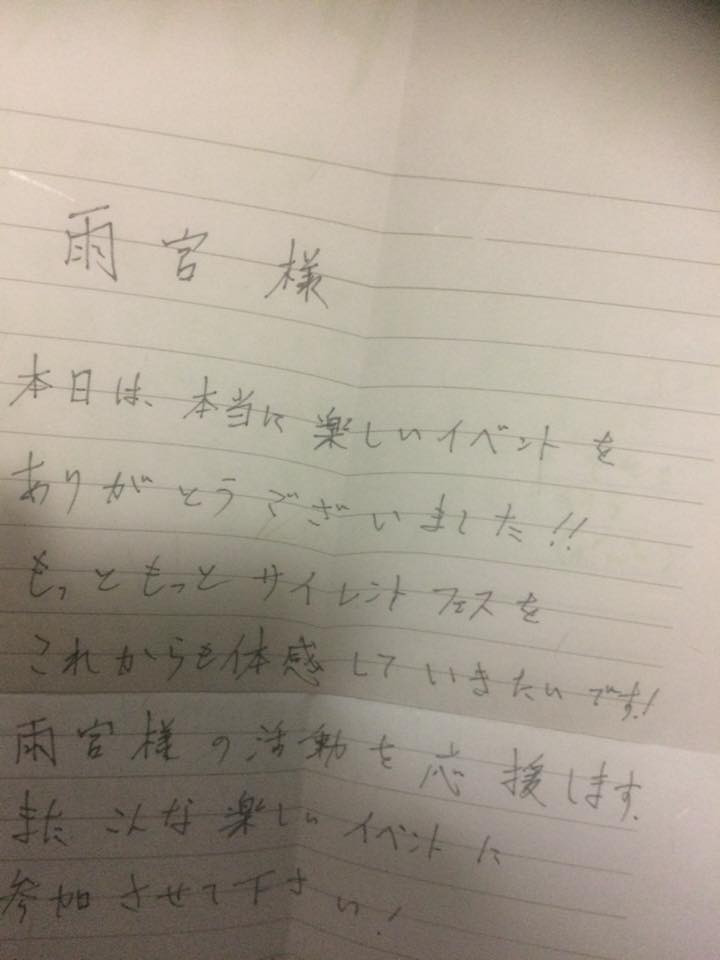 雨宮様
本日は、本当に楽しいイベントを
ありがとうございました!!
もっともっとサイレントフェスを
これからも体感していきたいです!
雨宮様の活動を応援します.
またこんな楽しいイベントに
参加させて下さい!